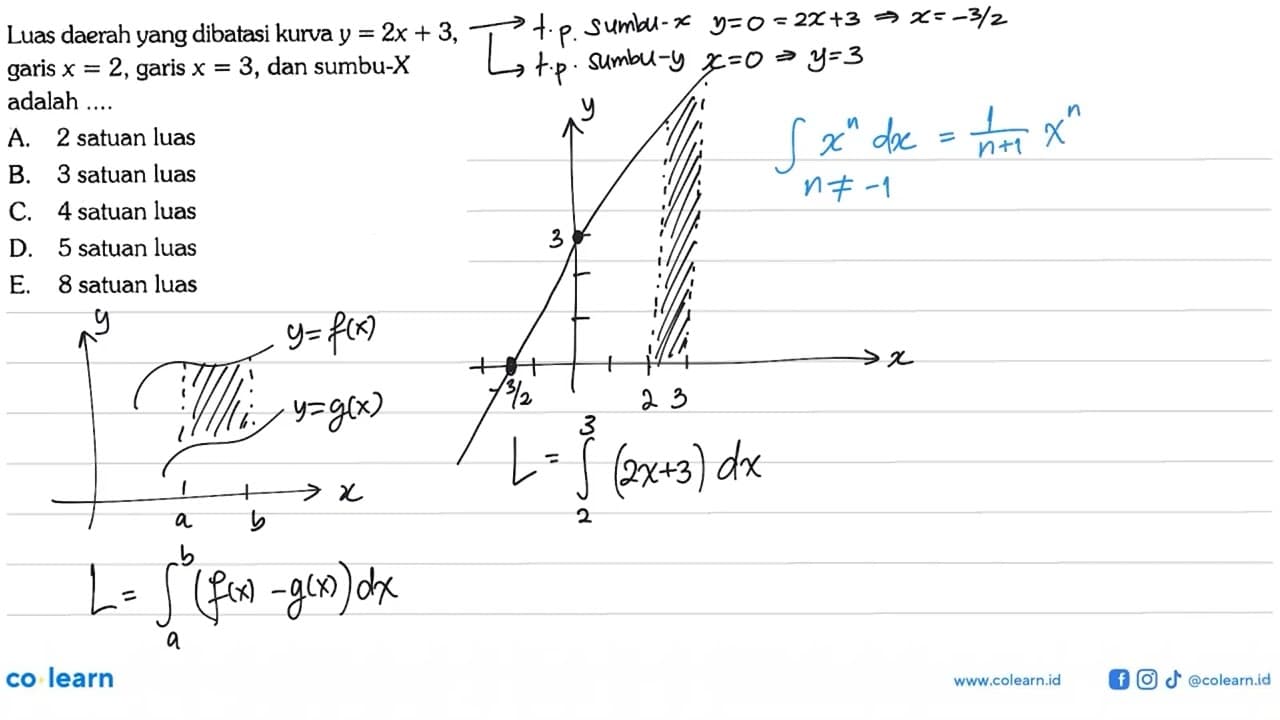 Luas daerah yang dibatasi kurva y = 2x + 3,
garis x = 2, garis x = 3, dan sumbu-X
adalah ....
A. 2 satuan luas
B. 3 satuan luas
C. 4 satuan luas
D. 5 satuan luas
E. 8 satuan luas
t.p. sumbu-x y=0 = 2x+3 ⇒ x = -3/2
t.p. sumbu-y x=0 ⇒ y=3
y
3
-3/2
2 3
x
∫ x^n dx = 1/(n+1) x^n
n ≠ -1
y
y=f(x)
y=g(x)
x
a b
L = ∫_a^b (f(x) - g(x)) dx
L = ∫_2^3 (2x+3) dx
co learn
www.colearn.id
@colearn.id